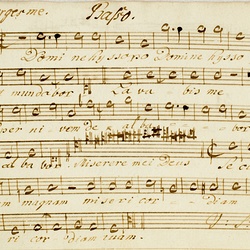 rger me. Basso.
Domine hyssopo Domine hysso
mundabor Lava bis me
per nivem de alba bor
alba bor Miserere mei Deus Se
m magnam misericor diam
ri cor diam tuam.